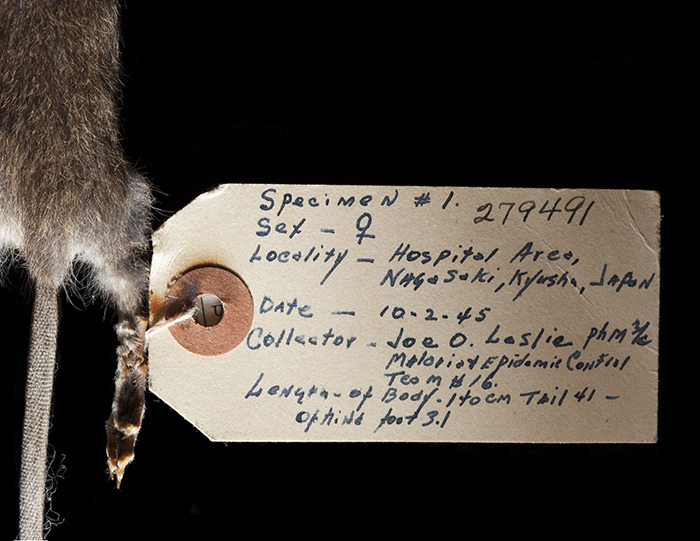 Specimen # 1. 279491
Sex - ♀
Locality - Hospital Area,
Nagasaki, Kyushu, Japan
Date - 10-2-45
Collector - Joe O. Leslie PhM
Malaria & Epidemic Control
Team # 16.
Length - of Body - 140cm Tail 41 -
of hind foot 3.1